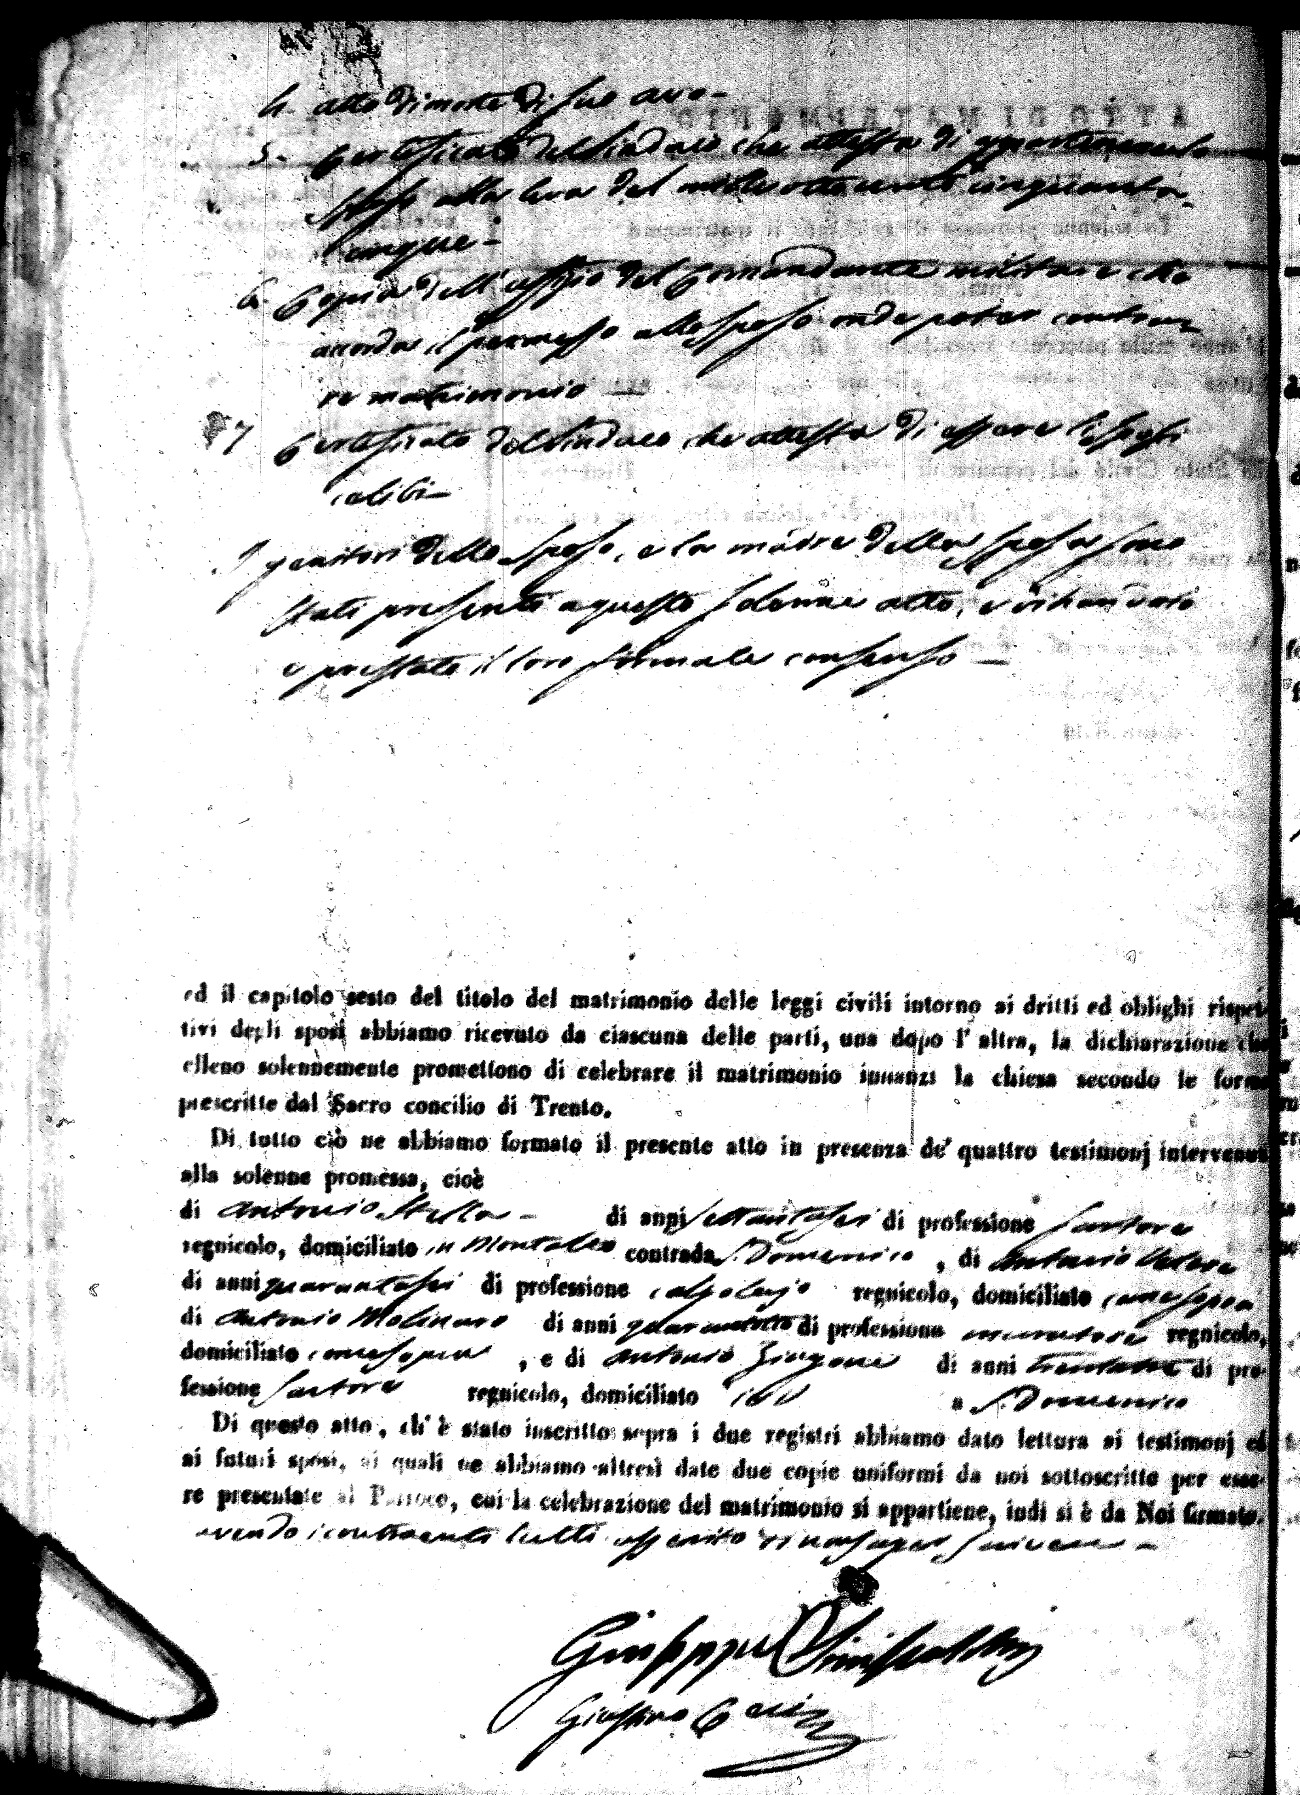 4. atto di morte di suo avo -
5 - Certificato del Sindaco che attesta di appartenere lo
sposo alla leva del mille otto cento cinquanta
cinque -
6. Copia dell'uffizio del Comandante militare che
accorda il permesso allo sposo onde poter contrar
re matrimonio —
7 Certificato del Sindaco che attesta di essere li sposi
celibi —
I genitori dello sposo, e la madre della sposa sono
stati presenti a questo solenne atto, e
e prestato il loro formale consenso —
ed il capitolo sesto del titolo del matrimonio delle leggi civili intorno ai dritti ed oblighi rispet-
tivi degli sposi abbiamo ricevuto da ciascuna delle parti, una dopo l' altra, la dichiarazione che
elleno solennemente promettono di celebrare il matrimonio innanzi la chiesa secondo le forme
prescritte dal Sacro concilio di Trento.
Di tutto ciò ne abbiamo formato il presente atto in presenza de' quattro testimonj intervenuti
alla solenne promessa, cioè
di Antonio Stella - di anni settantasei di professione Sartore
regnicolo, domiciliato in contrada S. Domenico , di Antonio
di anni quarantasei di professione calzolajo regnicolo, domiciliato come sopra
di Antonio Molinaro di anni quarantotto di professione muratore regnicolo,
domiciliato come sopra , e di Antonio di anni di pro-
fessione Sartore regnicolo, domiciliato ivi a S. Domenico
Di questo atto, ch' è stato inscritto sopra i due registri abbiamo dato lettura ai testimonj ed
ai futuri sposi, ai quali ne abbiamo altresì date due copie uniformi da noi sottoscritte per esse-
re presentate al Parroco, cui la celebrazione del matrimonio si appartiene, indi si è da Noi firmato.
avendo i contraenti tutti asserito di non saper scrivere -
Giuseppe Siniscalchi